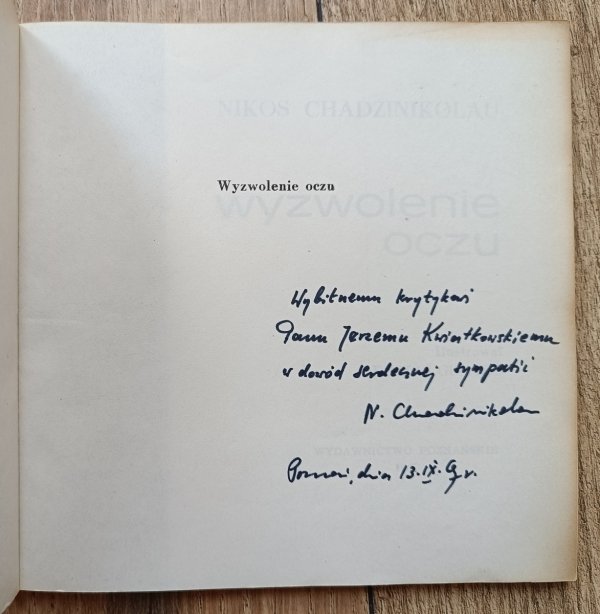 NIKOS CHADZINIKOLAU
Wyzwolenie oczu
wyzwolenie
oczu
Wybitnemu krytykowi
Panu Jerzemu Kwiatkowskiemu
w dowód serdecznej sympatii
N. Chadzinikolau
WYDAWNICTWO POZNAŃSKIE
Poznań, dnia 13.IX. r.